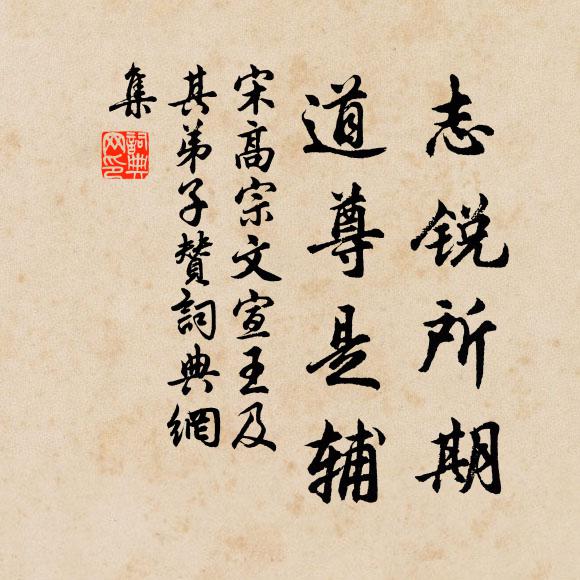 志锐所期
道尊是辅
宋高宗文宣王及
其弟子赞詞典網
集
詞典網印